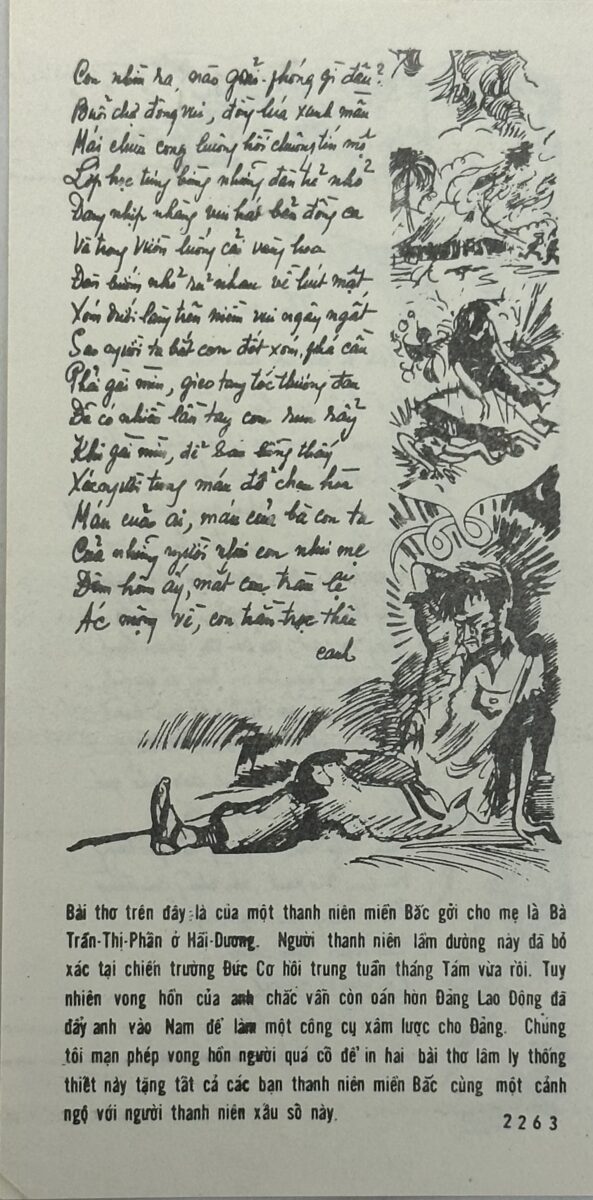 Con nhìn ra, nào giải-phóng gì đâu?
Buổi chợ đông vui, đồng lúa xanh mầu
Mái chùa cong buông hồi chuông tín mộ
Lớp học tưng bừng những đàn trẻ nhỏ
Đang nhịp nhàng vui hát bản đồng ca
Và trong vườn luống cải vàng hoa
Đàn bướm nhỏ rủ nhau về hút mật
Xóm dưới làng trên niềm vui ngây ngất
Sao người ta bắt con đốt xóm, phá cầu
Phải gài mìn, gieo tang tóc thương đau
Đã có nhiều lần tay con run rẩy
Khi gài mìn, để rồi bỗng thấy
Xác người tung máu đổ chan hòa
Máu của ai, máu của bà con ta
Của những người như con như mẹ
Đêm hôm ấy, mắt con tràn lệ
Ác mộng về, con trằn-trọc thâu
canh
Bài thơ trên đây là của một thanh niên miền Bắc gởi cho mẹ là Bà
Trần-Thị-Phần ở Hải-Dương. Người thanh niên lầm đường này đã bỏ
xác tại chiến trường Đức Cơ hồi trung tuần tháng Tám vừa rồi. Tuy
nhiên vong hồn của anh chắc vẫn còn oán hờn Đảng Lao Động đã
đẩy anh vào Nam để làm một công cụ xâm lược cho Đảng. Chúng
tôi mạn phép vong hồn người quá cố để in hai bài thơ lâm ly thống
thiết này tặng tất cả các bạn thanh niên miền Bắc cùng một cảnh
ngộ với người thanh niên xấu số này.
2263